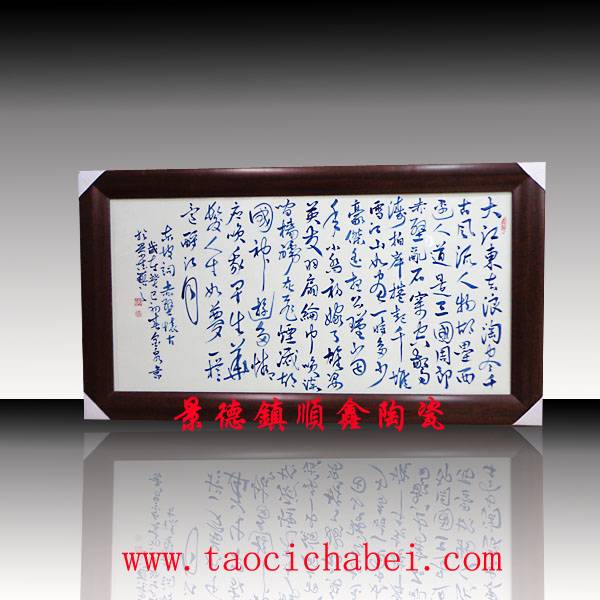 大江東去浪淘尽千
古風流人物故壘西
邊人道是三國周郎
赤壁乱石穿空驚
濤拍岸捲起千堆
雪江山如画一時多少
豪傑遥想公瑾当
年小喬初嫁了雄姿
英发羽扇綸巾談笑
間檣櫓灰飛煙滅故
國神遊多情
應笑我早生華
髮人生如夢一樽
還酹江月
東坡詞赤壁懷古
歲在癸巳初春金泉書
景德鎮順鑫陶瓷
www.taocichabei.com